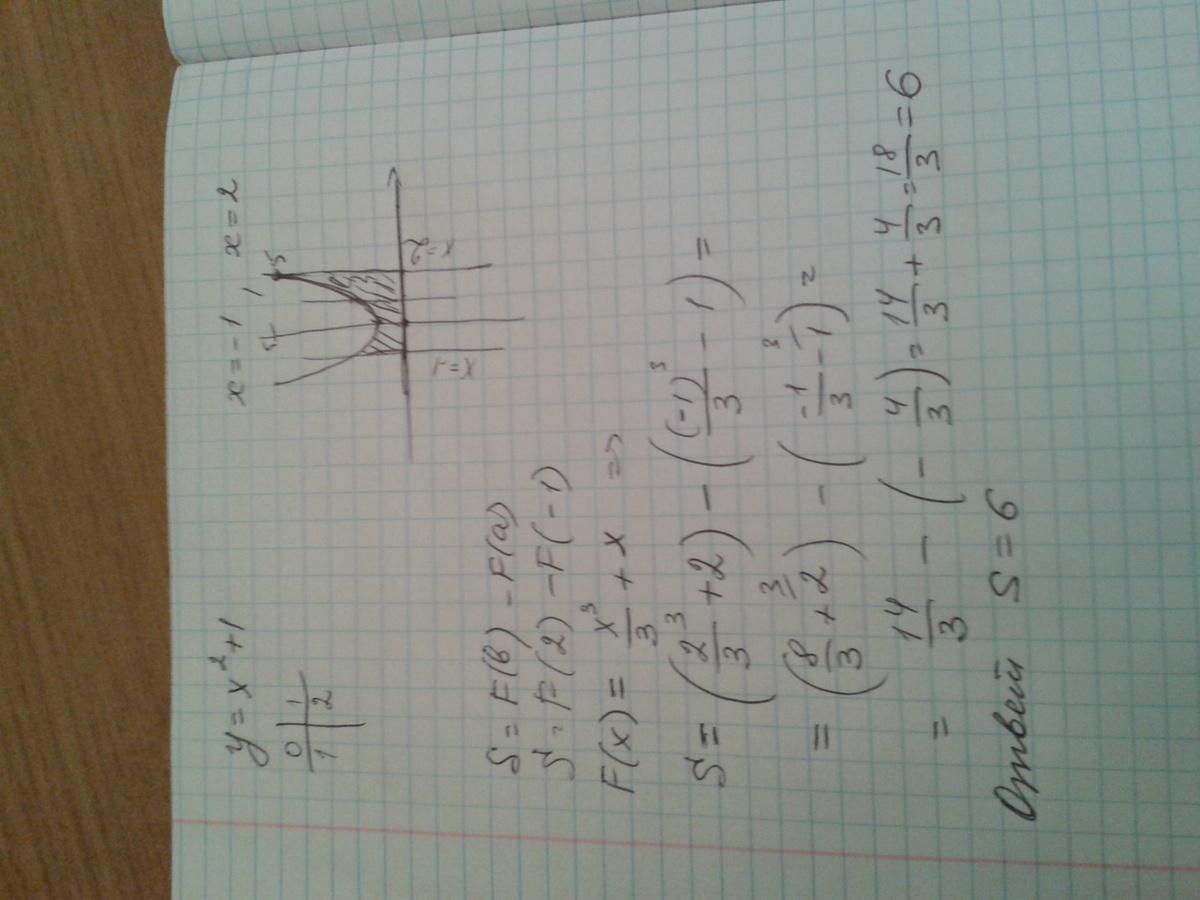 y = x² + 1    x = -1    x = 2
0 | 1
1 | 2
5
x=-1    x=2
S = F(b) - F(a)
S = F(2) - F(-1)
F(x) = x³/3 + x =>
S = (2³/3 + 2) - ((-1)³/3 - 1) =
= (8/3 + 2) - (-1/3 - 1) =
= 14/3 - (-4/3) = 14/3 + 4/3 = 18/3 = 6
Ответ S = 6